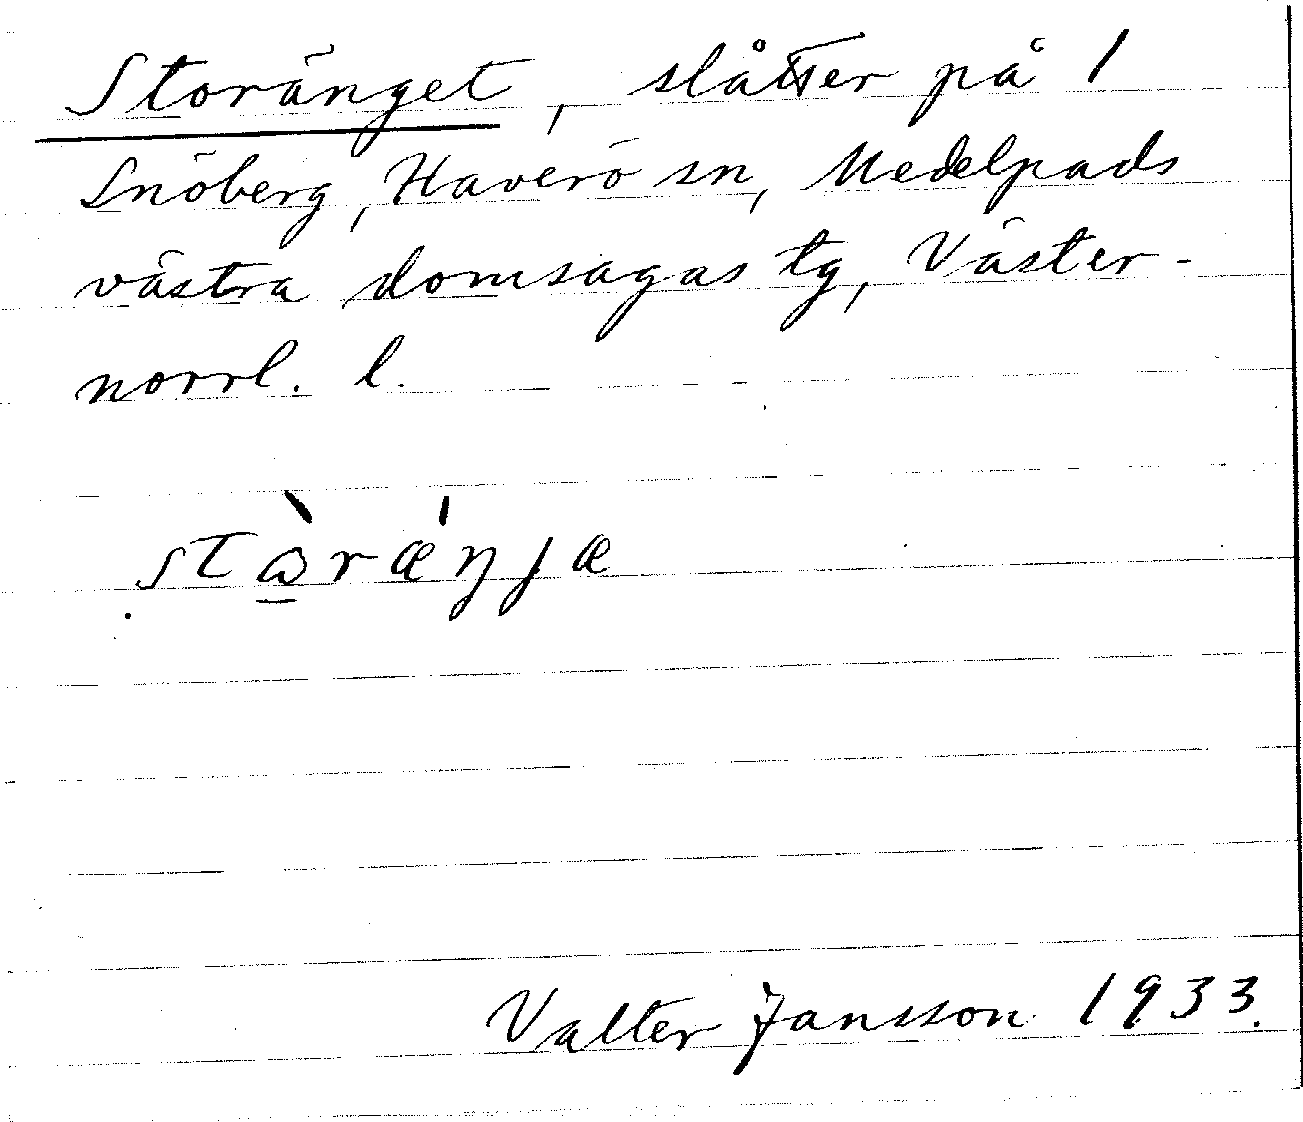 Storänget, slåtter på 1
Snöberg, Haverö sn, Medelpads
västra domsagas tg, Väster-
norrl. l.
stɷ̱̀rǽŋjæ
Valter Jansson 1933.